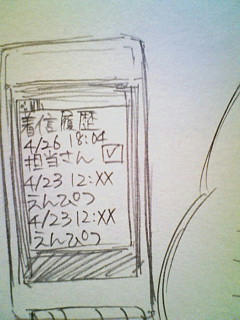 着信履歴
4/26 18:04
担当さん
4/23 12:XX
えんぴつ
4/23 12:XX
えんぴつ